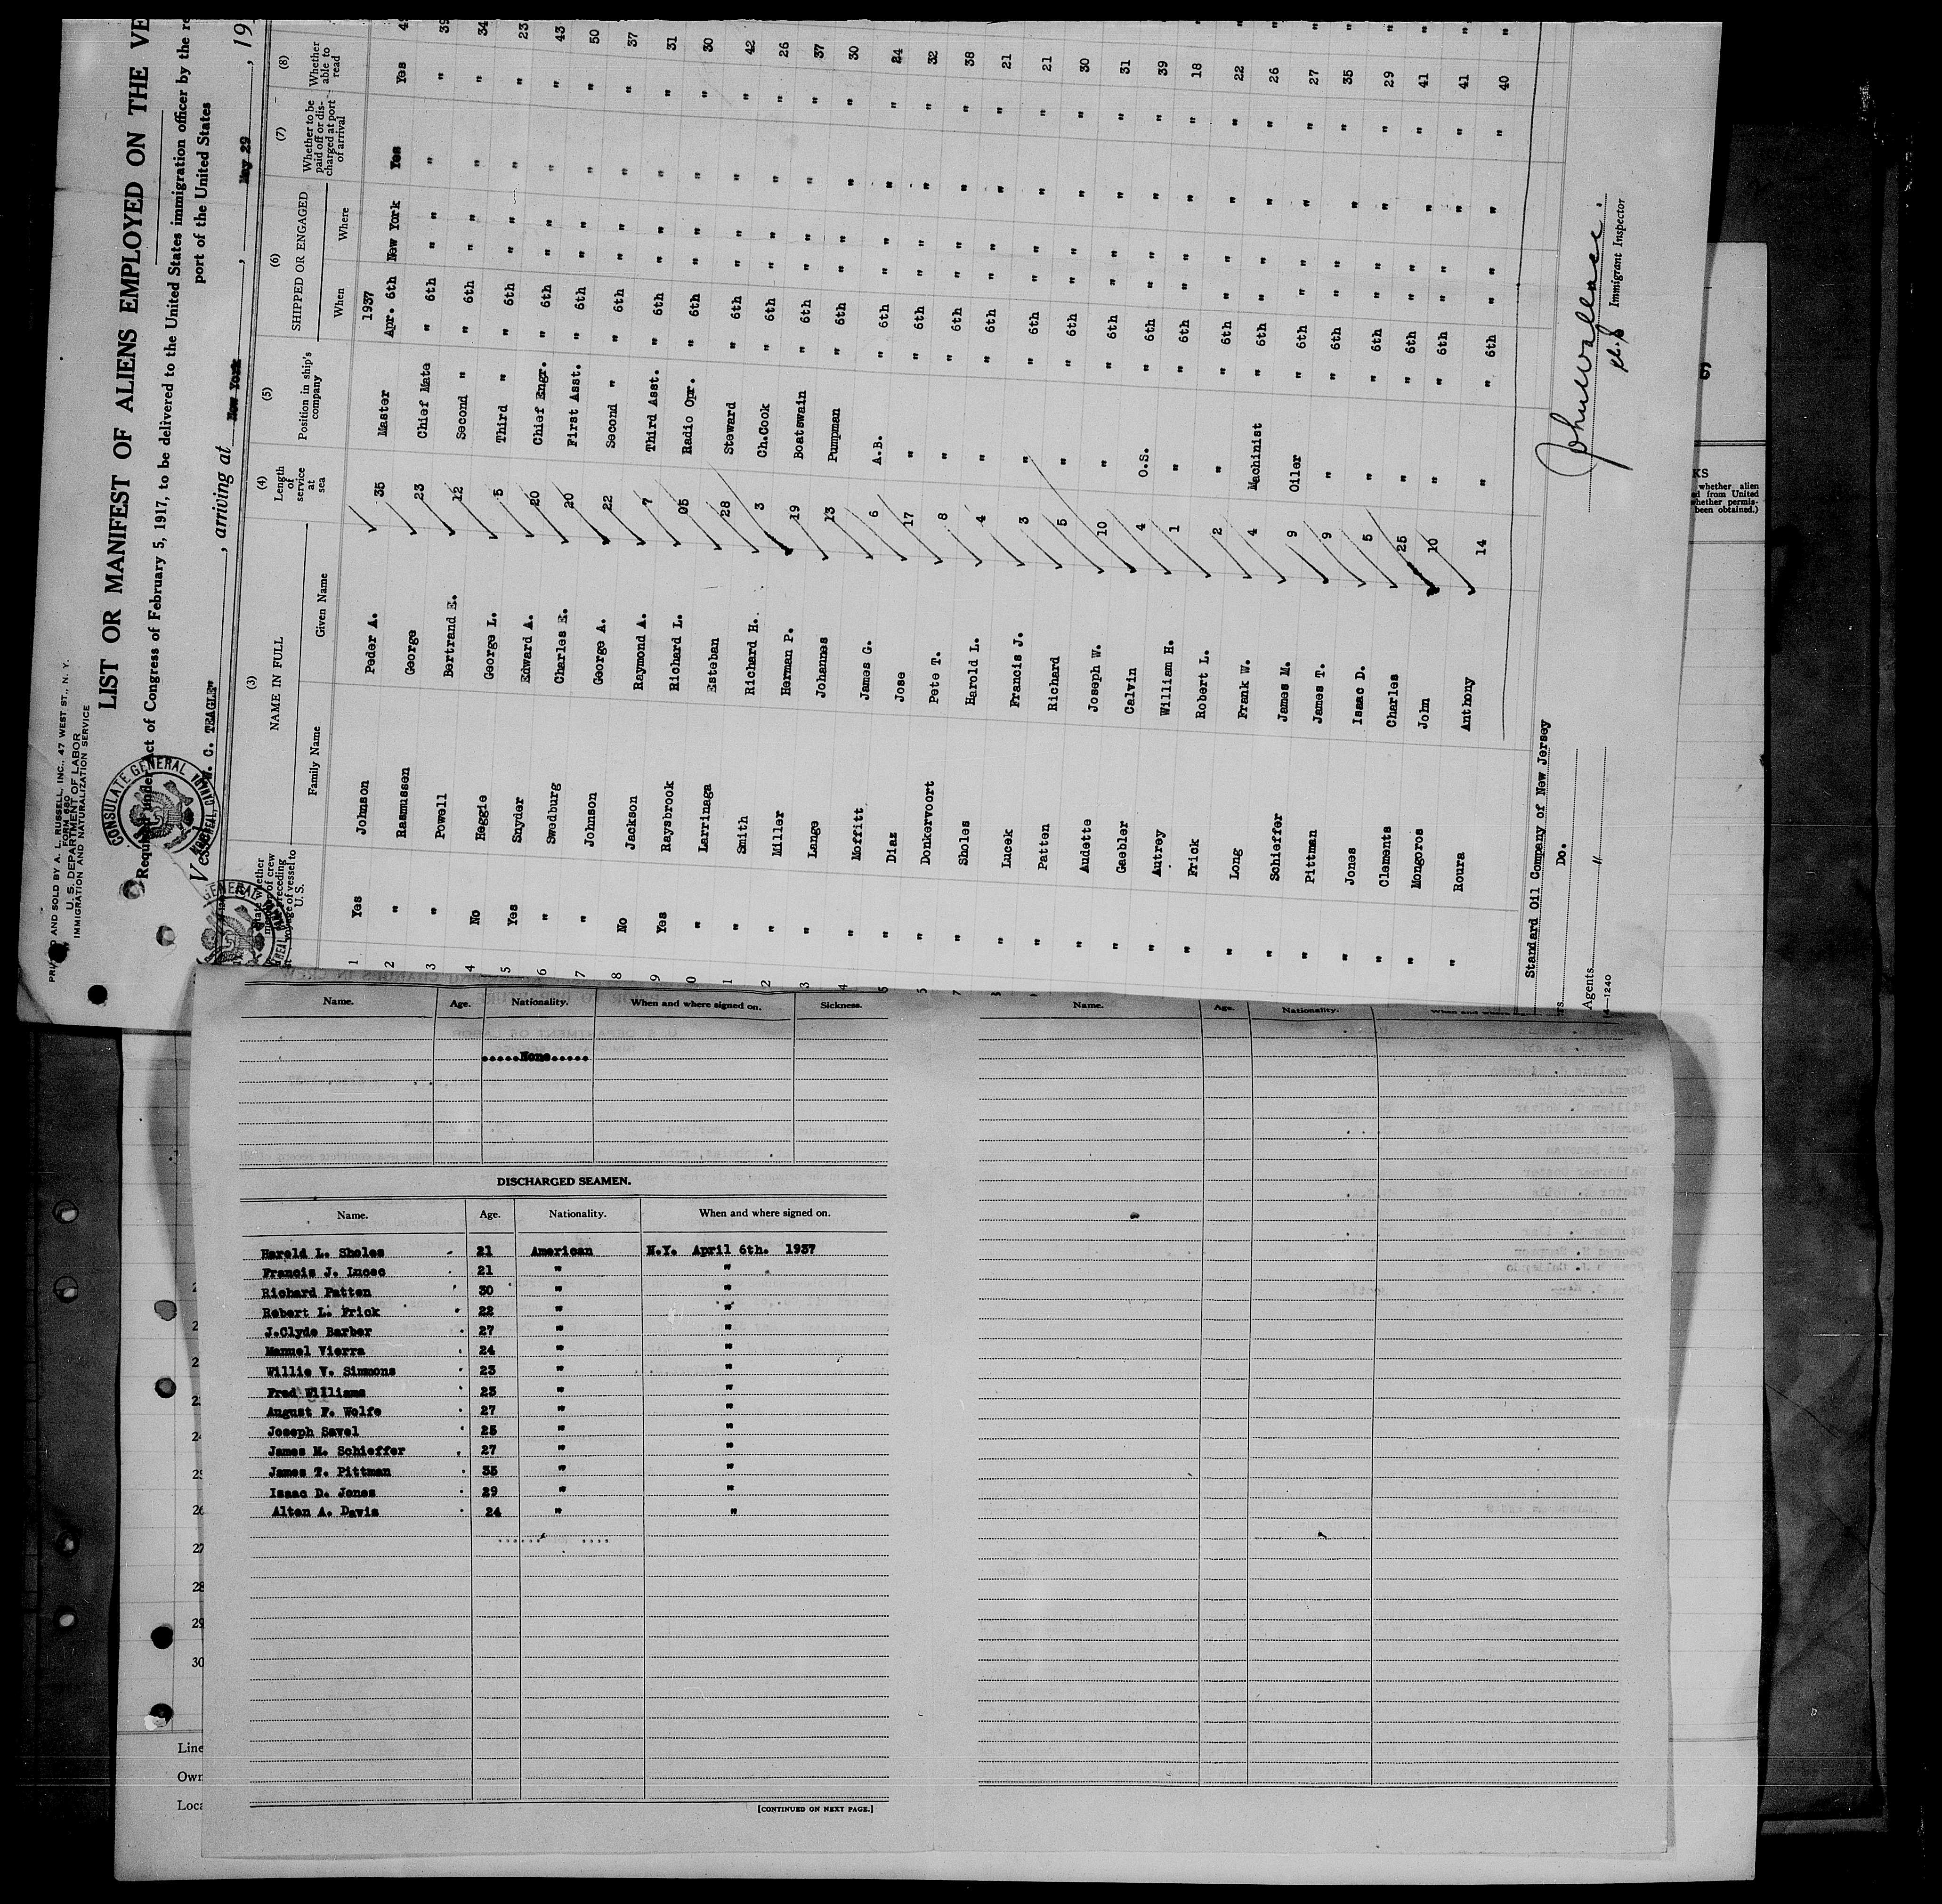 PRINTED AND SOLD BY A. L. RUSSELL, INC., 47 WEST ST., N. Y.
FORM 680
U. S. DEPARTMENT OF LABOR
IMMIGRATION AND NATURALIZATION SERVICE
LIST OR MANIFEST OF ALIENS EMPLOYED ON THE VE
Required under Act of Congress of February 5, 1917, to be delivered to the United States immigration officer by the re
port of the United States
CONSULATE GENERAL MONTREAL, CANADA
Vessel W. C. TEAGLE" , arriving at New York , May 29 , 19
(3) (4) (5) (6) (7) (8)
State whether member of crew preceding voyage of vessel to U.S. NAME IN FULL Length of service at sea Position in ship's company SHIPPED OR ENGAGED Whether to be paid off or discharged at port of arrival Whether able to read
Family Name Given Name When Where
1937
1 Yes Johnson Peder A. 35 Master Apr. 6th New York Yes Yes
2 " Rasmussen George 23 Chief Mate " 6th " " " " 39
3 " Powell Bertrand E. 12 Second " " 6th " " " " 34
4 No Heggie George L. 5 Third " " 6th " " " " 23
5 Yes Snyder Edward A. 20 Chief Engr. " 6th " " " " 43
6 " Swedburg Charles E. 20 First Asst. " 6th " " " " 50
7 " Johnson George A. 22 Second " " 6th " " " " 37
8 No Jackson Raymond A. 7 Third Asst. " 6th " " " " 31
9 Yes Raysbrook Richard L. 05 Radio Opr. " 6th " " " " 30
0 " Larrinaga Esteban 28 Steward " 6th " " " " 42
1 " Smith Richard H. 3 Ch.Cook " 6th " " " " 26
2 " Miller Herman P. 19 Boatswain " 6th " " " " 37
3 " Lange Johannes 13 Pumpman " 6th " " " " 30
4 " Moffitt James G. 6 A.B. " 6th " " " " 24
5 " Diaz Jose 17 " " 6th " " " " 32
" Donkervoort Pete T. 8 " " 6th " " " " 38
7 " Sholes Harold L. 4 " " 6th " " " " 21
" Lucek Francis J. 3 " " 6th " " " " 21
" Patten Richard 5 " " 6th " " " " 30
" Audette Joseph W. 10 " " 6th " " " " 31
" Gaebler Calvin 4 O.S. " 6th " " " " 39
" Autrey William H. 1 " " 6th " " " " 18
" Frick Robert L. 2 " " 6th " " " " 22
" Long Frank W. 4 Machinist " 6th " " " " 26
" Schieffer James M. 9 Oiler " 6th " " " " 27
" Pittman James T. 9 " " 6th " " " " 35
" Jones Isaac D. 5 " " 6th " " " " 29
" Clements Charles 25 " " 6th " " " " 41
" Mongoros John 10 " " 6th " " " " 41
" Roura Anthony 14 " " 6th " " " " 40
Standard Oil Company of New Jersey
Do.
Agents "
14—1240
Immigrant Inspector
KS
whether alien
ed from United
whether permis-
been obtained.)
Name. Age. Nationality. When and where signed on. Sickness.
.....None.....
DISCHARGED SEAMEN.
Name. Age. Nationality. When and where signed on.
Harold L. Sholes 21 American N.Y. April 6th. 1937
Francis J. Lucec 21 " "
Richard Patten 30 " "
Robert L. Frick 22 " "
J.Clyde Barber 27 " "
Manuel Vierra 24 " "
Willie V. Simmons 23 " "
Fred Williams 23 " "
August F. Wolfe 27 " "
Joseph Savel 25 " "
James M. Schieffer 27 " "
James T. Pittman 35 " "
Isaac D. Jones 29 " "
Alton A. Davis 24 " "
[CONTINUED ON NEXT PAGE.]
Name. Age. Nationality. When and where signed on.
24
26
27
28
29
30
Line
Own
Loca